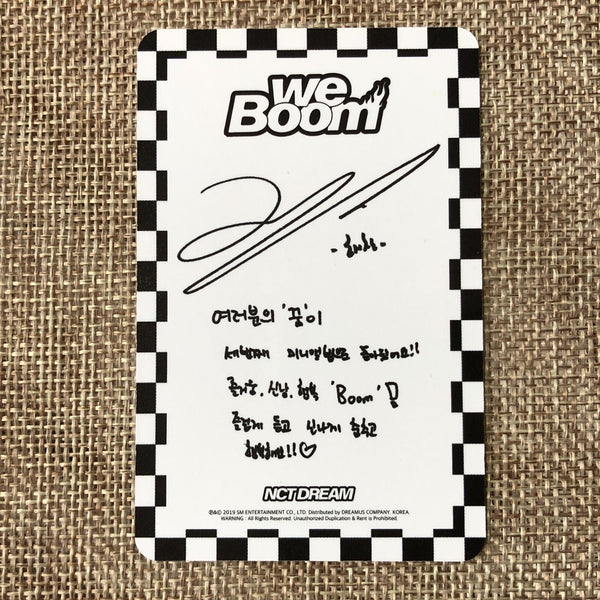 we
Boom
-해찬-
여러분의 '꿈'이
세번째 미니앨범으로 돌아왔어요!!
즐거움, 신남, 행복 'Boom'!
즐겁게 듣고 신나게 춤추고
행복해요!!♡
NCT DREAM
℗&© 2019 SM ENTERTAINMENT CO., LTD. Distributed by DREAMUS COMPANY. KOREA.
WARNING : All Rights Reserved. Unauthorized Duplication & Rent is Prohibited.